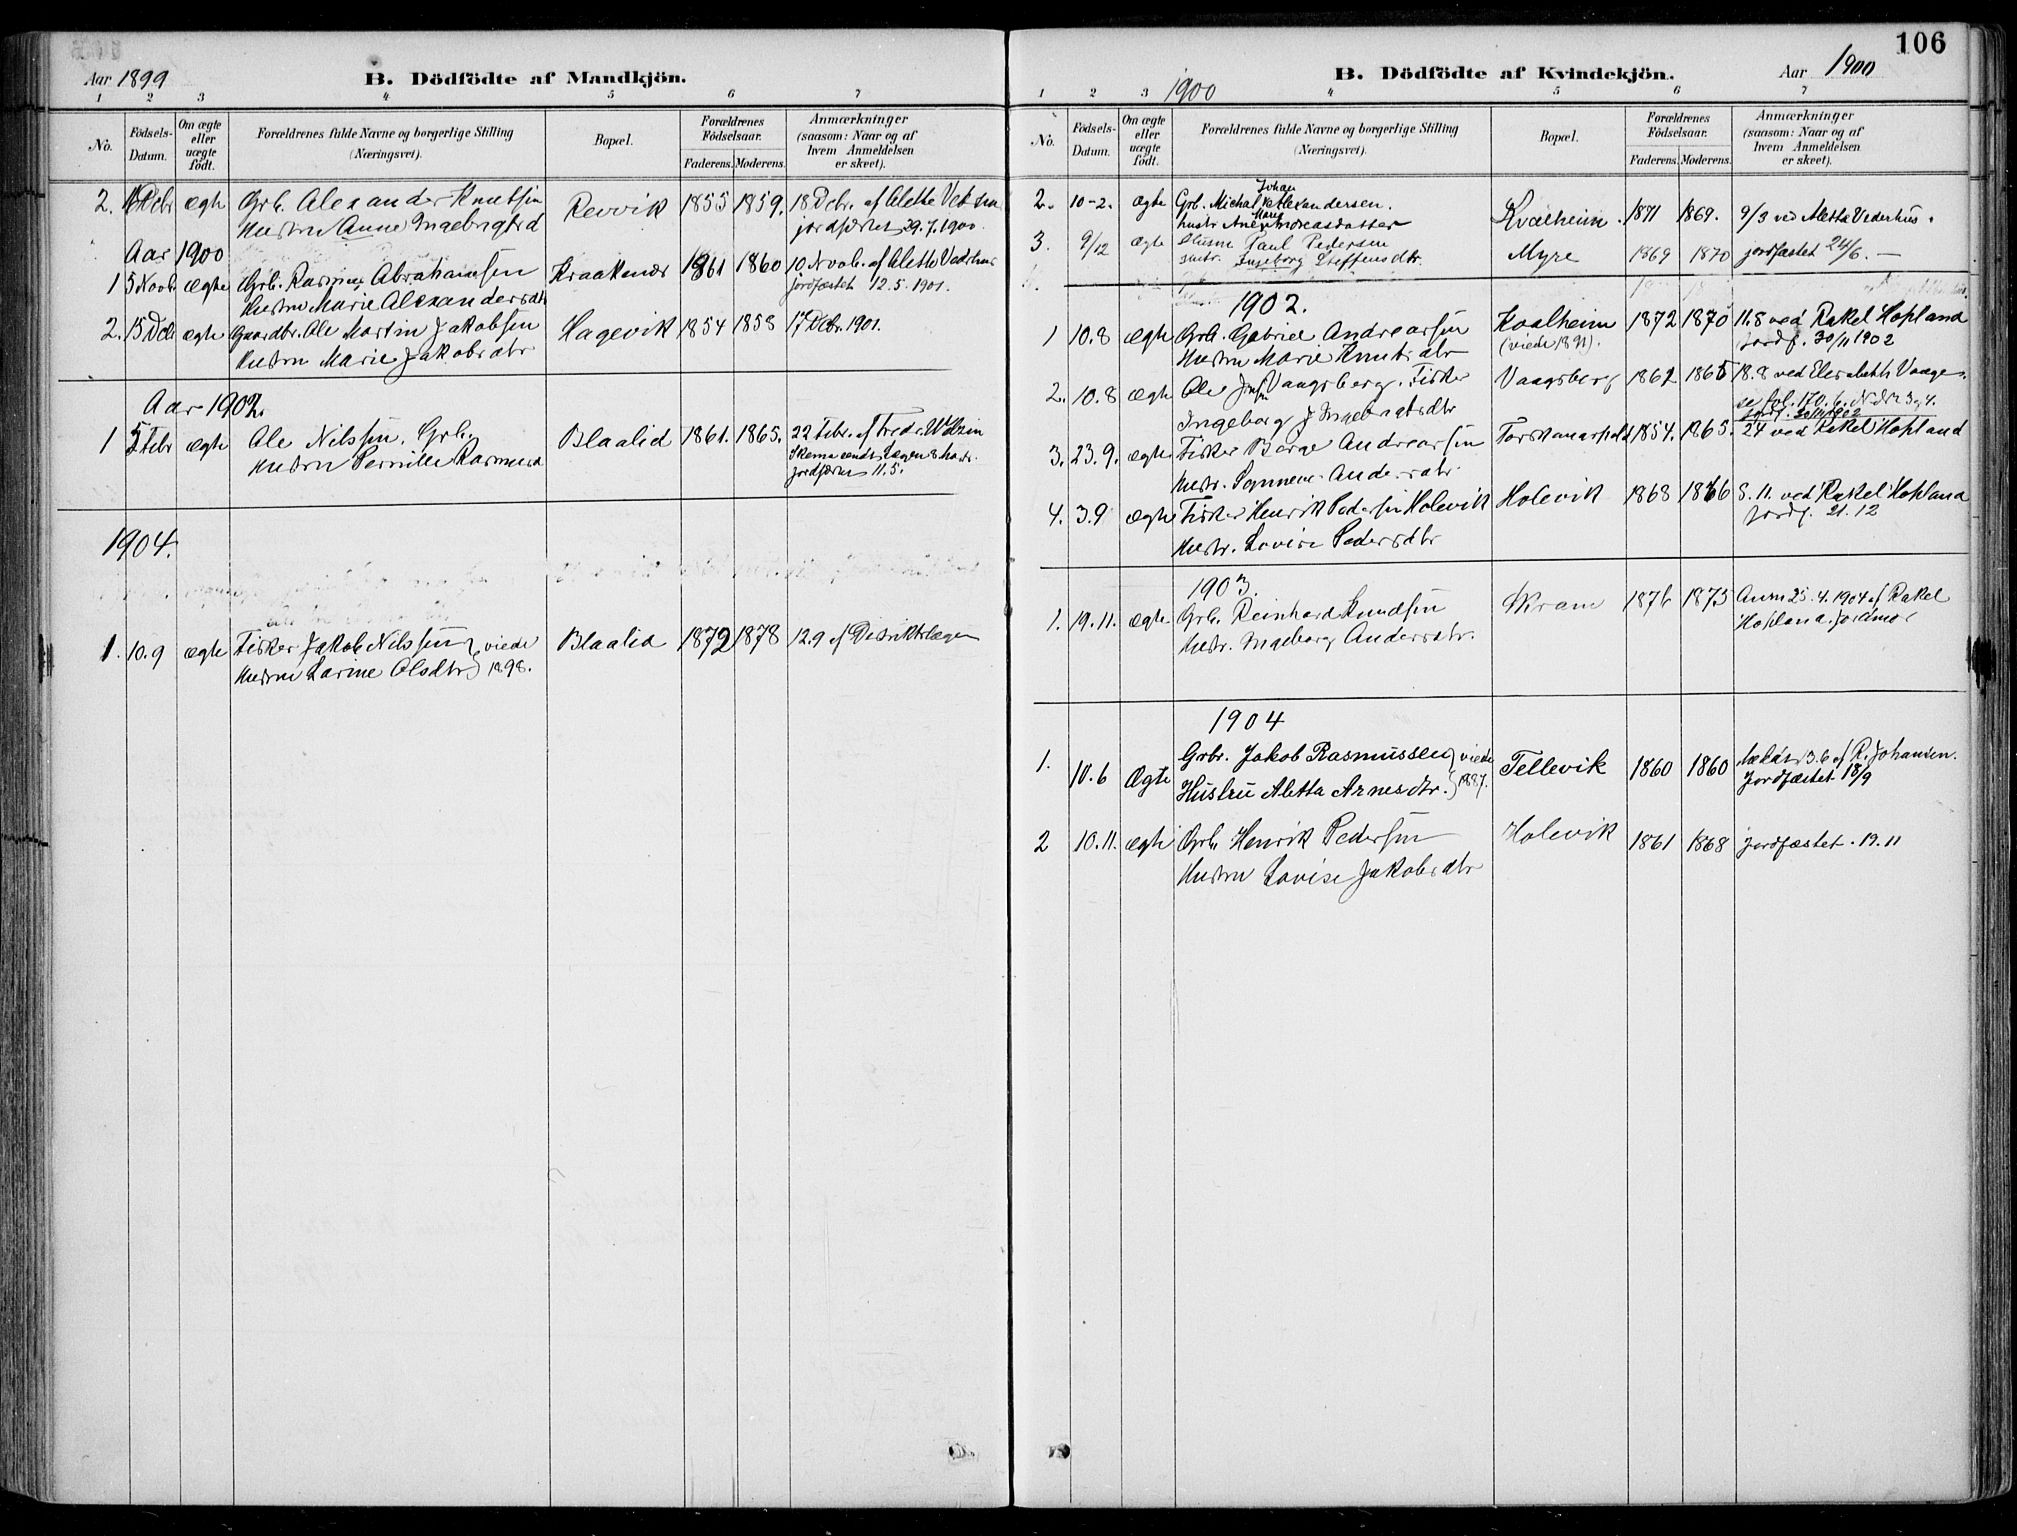 106
Aar 1899
B. Dödfödte af Mandkjön.
1 2 3 4 5 6 7
No.
Födsels-Datum.
Om ægte eller uægte födt.
Forældrenes fulde Navne og borgerlige Stilling (Næringsvei).
Bopæl.
Forældrenes Födselsaar.
Faderens. Moderens.
Anmærkninger (saasom: Naar og af hvem Anmeldelsen er skeet).
2. Dcbr ægte Grb. Alexander Knutsen Revvik 1855 1859. 18 Dcbr. af Alette
Hustru Anne Ingebrigtsd jordfæstet 29.7.1900.
Aar 1900
1 5 Novb. ægte Grb. Rasmus Abrahamsen Kraakenes 1861 1860 10 Novb. af Alette Vederhus
Hustru Marie Alexandersdtr jordfæstet 12.5.1901.
2. 15 Dcb ægte Gaardbr. Ole Martin Jakobsen Hagevik 1854 1858 17 Dcbr. 1901.
Hustru Marie Jakobsdtr
Aar 1902.
1 5 Febr ægte Ole Nilssen, Grb. Blaalid 1861. 1865. 22 Febr. af Fredr.
Hustru Pernille Rasmusd Skema sendt Lægen 8 Marts.
jordfæstet 11.5.
1904.
1. 10.9 ægte Fisker Jakob Nilssen viede Blaalid 1872 1878 12.9 af Distriktslægen
Hustru Larine Olsdtr 1898.
B. Dödfödte af Kvindekjön.
Aar 1900
1 2 3 1900 4 5 6 7
No.
Födsels-Datum.
Om ægte eller uægte födt.
Forældrenes fulde Navne og borgerlige Stilling (Næringsvei).
Bopæl.
Forældrenes Födselsaar.
Faderens. Moderens.
Anmærkninger (saasom: Naar og af hvem Anmeldelsen er skeet).
Johan
2. 10-2. ægte Grb. Michal Alexandersen. Kvalheim. 1871 1869. 9/3 ved Aletta Vederhus.
Marie
hustr Ane Andreasdatter
3. 9/12 ægte Paul Pedersen Myre 1869 1870 jordfæstet 24/6. —
hustr. Ingeborg Steffensdtr.
1902.
1 10.8 ægte Grb. Gabriel Andreassen Kvalheim 1872 1870 11.8 ved Rakel Hopland
Hustru Marie Knutsdtr (viede 1891). jordf. 30/11 1902
2. 10.8 ægte Ole Jensen Vaagsberg. Fisker Vaagsberg 1862 1865 18.8 ved Elisabeth Vaage.
Ingeborg J Ingebrigtsdtr se fol. 170. 6. No 3 og 4.
3. 23.9. ægte Fisker Berge Andreassen 1854. 1865. 24 ved Rakel Hopland
Hustr. Synneve Andersdtr.
4. 3.9 ægte Fisker Henrik Pedersen Holevik Holevik 1868 1866 8.11. ved Rakel Hopland
Hustr. Lovise Pedersdtr jordf. 21.12
1903.
1. 19.11. ægte Grb. Reinhard Knudsen Skram 1876 1875 Anm 25.4.1904 af Rakel
Hustr. Ingeborg Andersdtr. Hopland. Jordmor
1904
1. 10.6 Ægte Grbr. Jakob Rasmussen viede Tellevik 1860 1860 13.6 af R. Johansen.
Hustru Aletta Arnesdtr. 1887. Jordfæstet 18/9
2 10.11. ægte Grb. Henrik Pedersen Holevik 1861 1868 jordfæstet. 19.11
Hustru Lovise Jakobsdtr